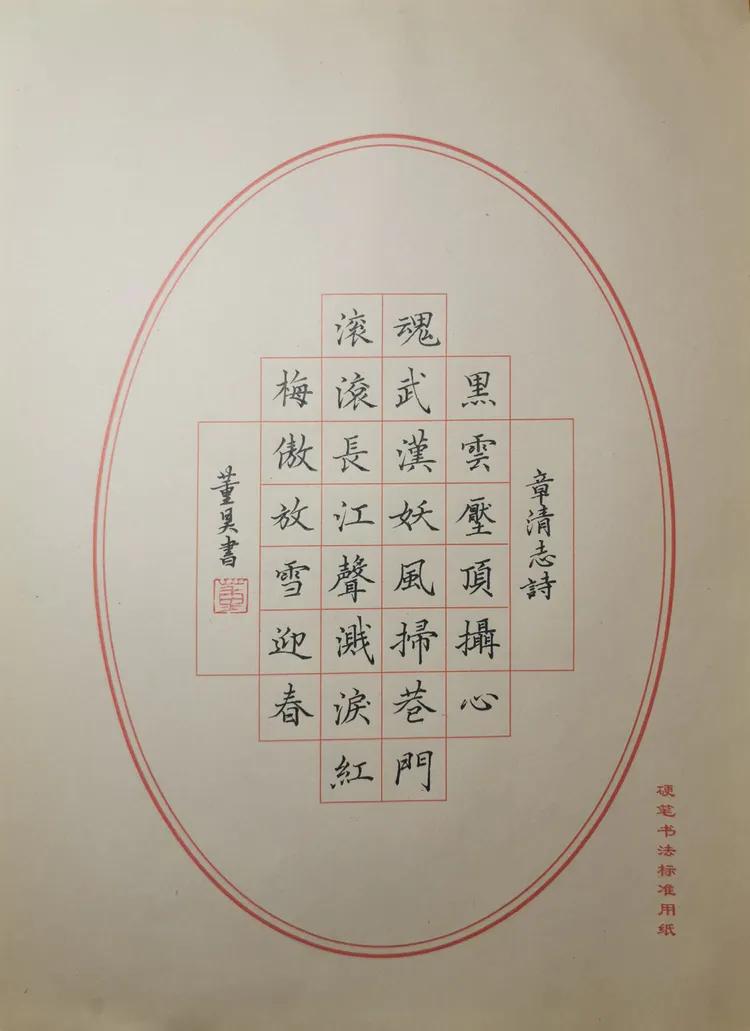 章清志詩
黑雲壓頂攝心
魂武漢妖風掃巷門
滾滾長江聲濺淚紅
梅傲放雪迎春
董昊書
董
硬笔书法标准用纸